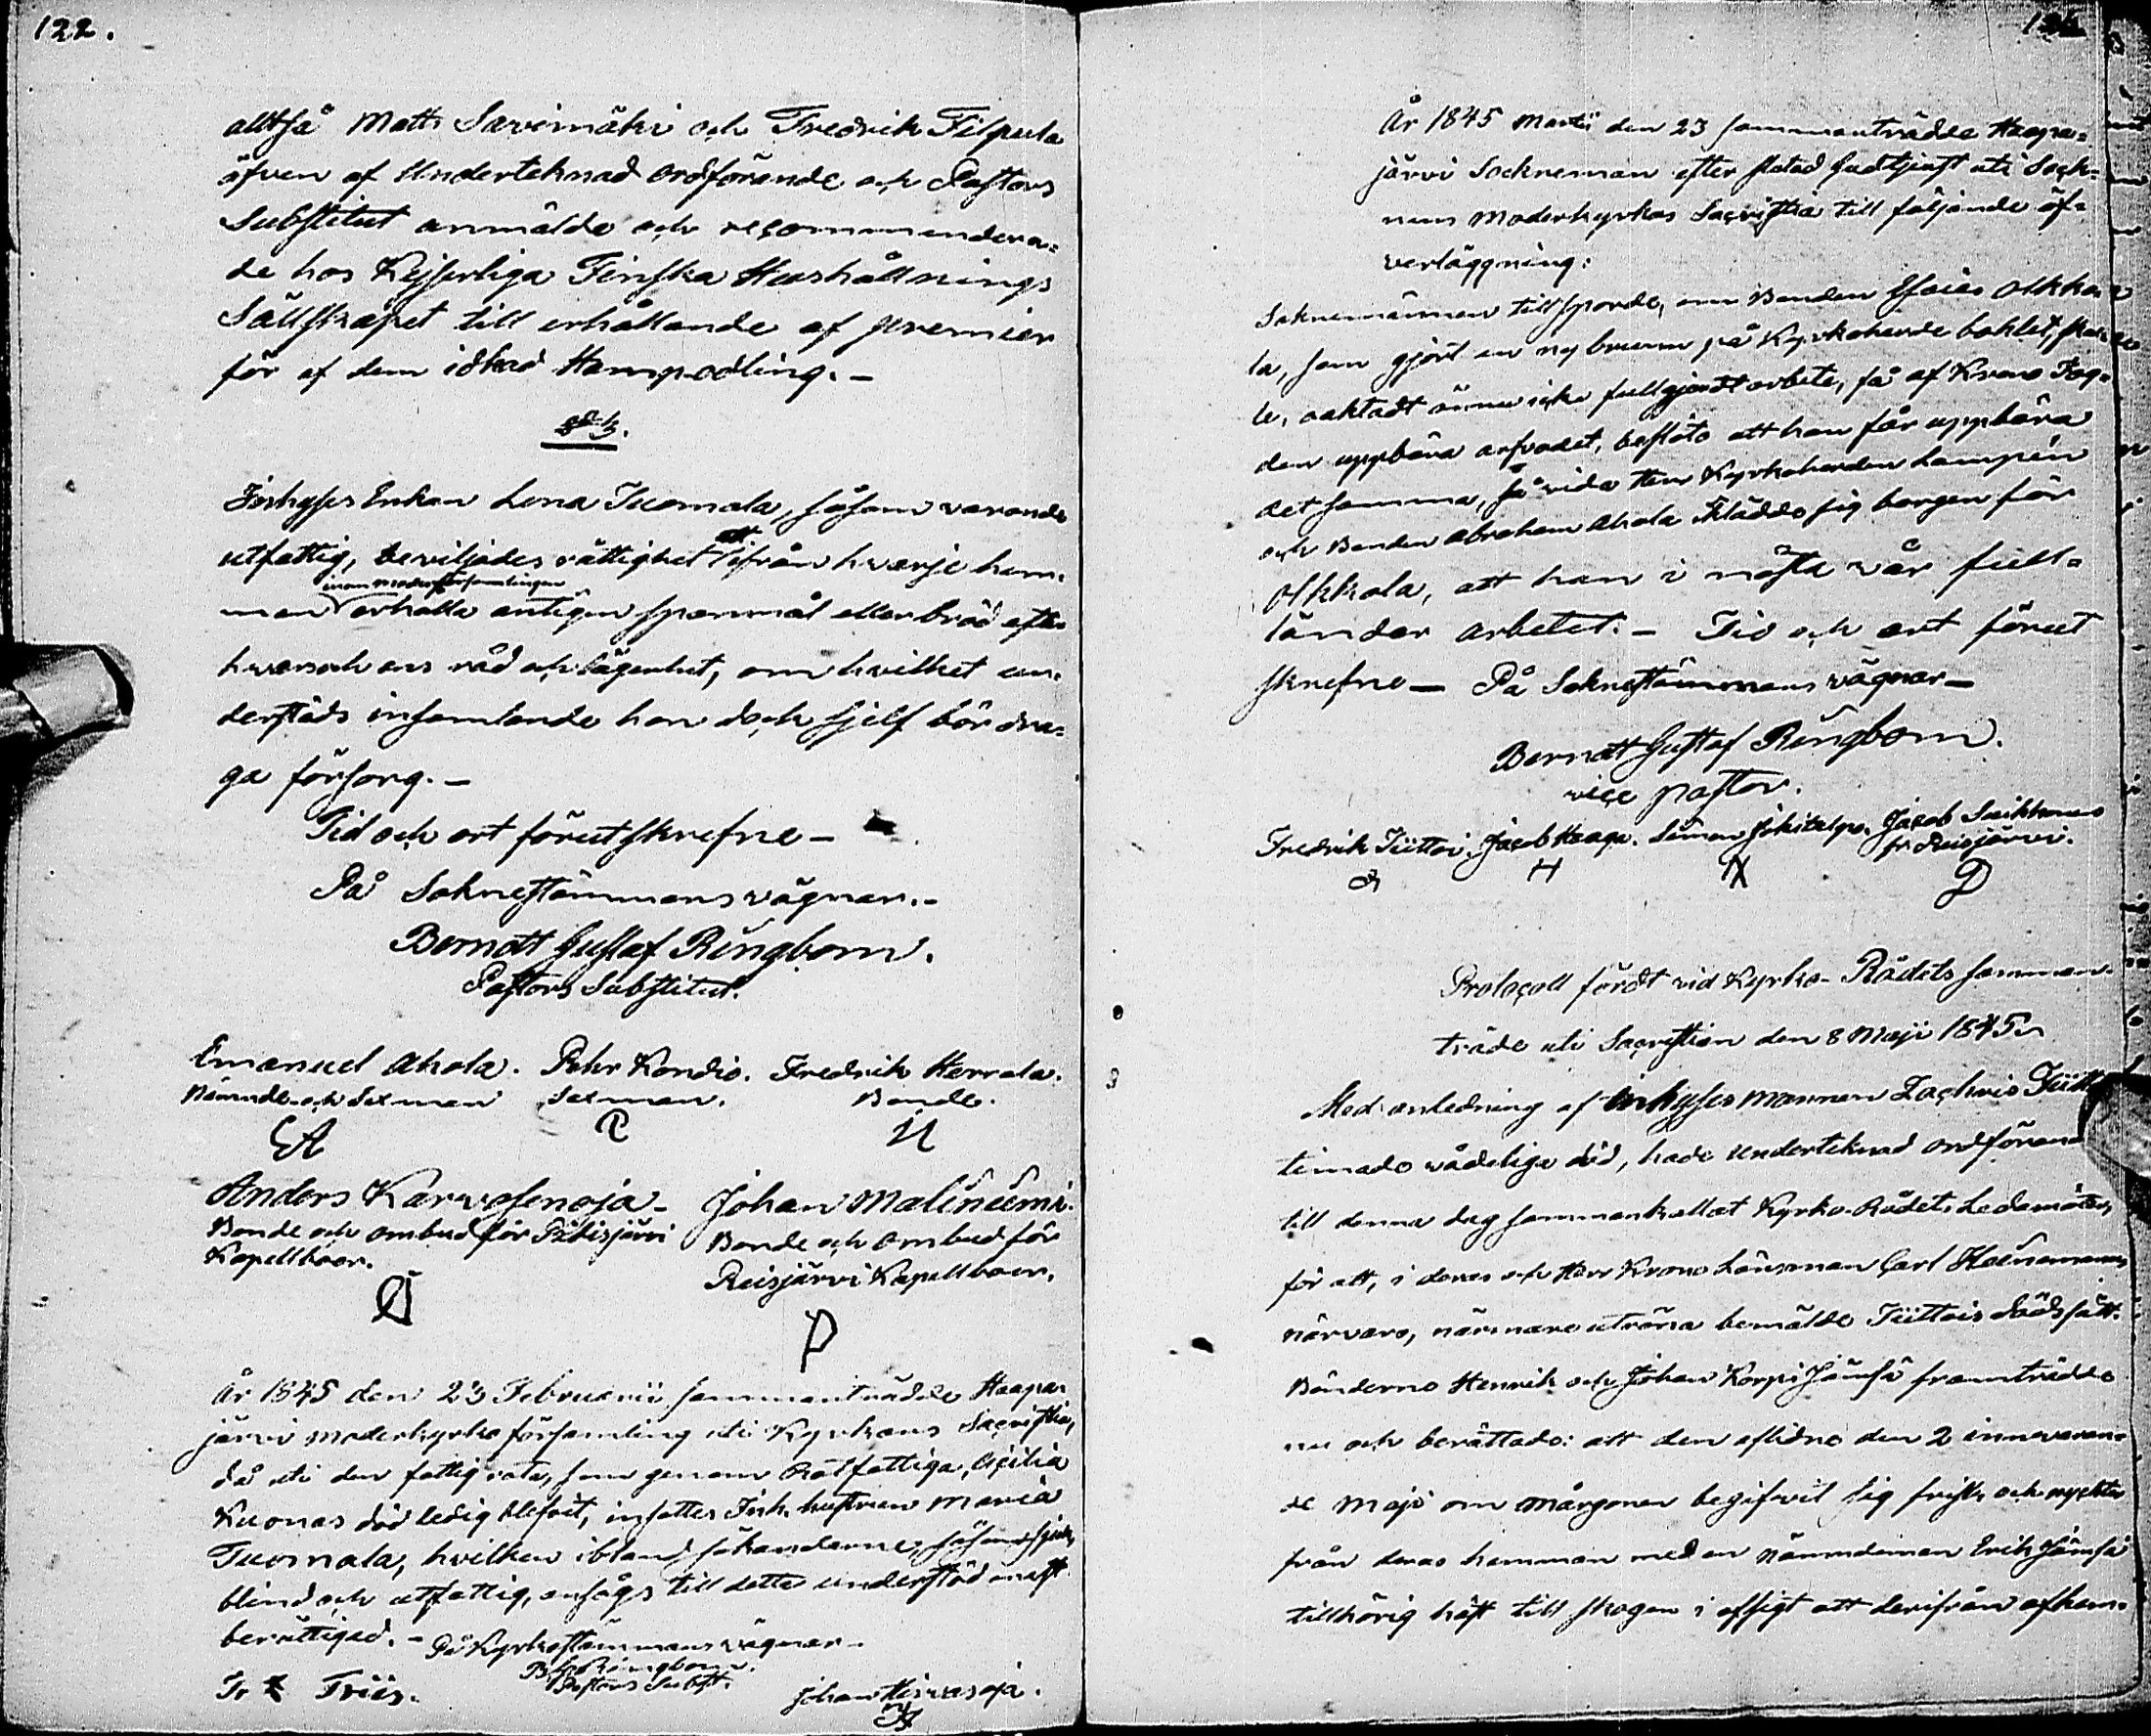 122.
alltså Matts Savimäki och Fredrik Tilpula
äfven af Undertecknad Ordförande och Pastors
Substitut anmälde och recommendera-
de hos Kejserliga Finska Hushållnings
Sällskapet till erhållande af premier
för af dem idkad Hampodling. –
§ 3.
Inhyses Enkan Lena Tuomala, såsom varande
utfattig, beviljades rättighet att ifrån hvarje hem-
inom moderförsamlingen
man erhålla antigen spanmål eller bröd efter
hvars och ens råd och lägenhet, om hvilket un-
derstöds insamlande hon doch sjelf bör dra-
ga försorg. –
Tid och ort förutskrefne –
På Soknestämmans vägnar. –
Berndt Gustaf Ringbom.
Pastors Substitut.
Emanuel Ahola. Pehr Kondio. Fredrik Herrala.
Nämnde och Sexman Sexman. Bonde.
EA P H
Anders Karvosenoja – Johan Maliniemi.
Bonde och ombud för Pidisjärvi Bonde och ombud för
Kapellboer. Reisjärvi Kapellboer.
År 1845 den 23 Februarii sammanträdde Haapa-
järvi moderkyrko församling uti Kyrkans Sacristia,
då uti den fattig rota, som genom Rotfattiga, Cicilia
Kuonas död ledig blefvit, insattes Inh. hustrun Maria
Tuomala, hvilken ibland sökanderne, såsom sjuk,
blind och utfattig, ansågs till detta understöd mest
berättigad. – På Kyrkostämmans vägnar –
B. G. Ringbom.
Pastors Subst.
Friis. Johan Hirvasoja.
År 1845 Martii den 23 sammanträdde Haapa-
järvi Socknemän efter slutad Gudstjenst uti Sock-
nens Moderkyrkas Sacristia till följande öf-
verläggning:
Soknemännen tillsporde, om Bonden Esaias Olkko-
la, som gjort en ny brunn på Kyrkoherde bohlet, skul-
le, oaktadt ännu icke fullgjordt arbete, få af Krono Fog-
den uppbära arfvodet, beslöto att han får uppbära
det samma, så vida Herr Kyrkoherden Lampén
och Bonden Abraham Ahola iklädde sig borgen för
Olkkola, att han i nästa vår full-
ändar arbetet. – Tid och ort förut
skrefne – På Soknestämmans vägnar –
Berndt Gustaf Ringbom.
vice pastor.
Fredrik Tiitto. Jacob Haapa. Simon Jokitalpo. Jacob Suikkanen
fr. Reisjärvi.
H
Protocoll fördt vid Kyrko-Rådets samman-
träde uti Sacristian den 8 Maji 1845
Med anledning af inhyses mannen Zachris Tiitto
timade vådeliga död, hade undertecknad ordförand
till denna dag sammankallat Kyrko-Rådets Ledamöter,
för att, i deras och Herr Krono Länsman Carl
närvaro, närmare utröna bemälde Tiittois dödssätt.
Bönderne Henrik och Johan Korpi Jämsä framträdde
nu och berättade: att den aflidne den 2 innevaran-
de Maji om mårgonen begifvit sig frisk och nyckter
från deras hemman med en nämndeman Erik Jämsä
tillhörig häst till skogen i afsigt att derifrån afhem-